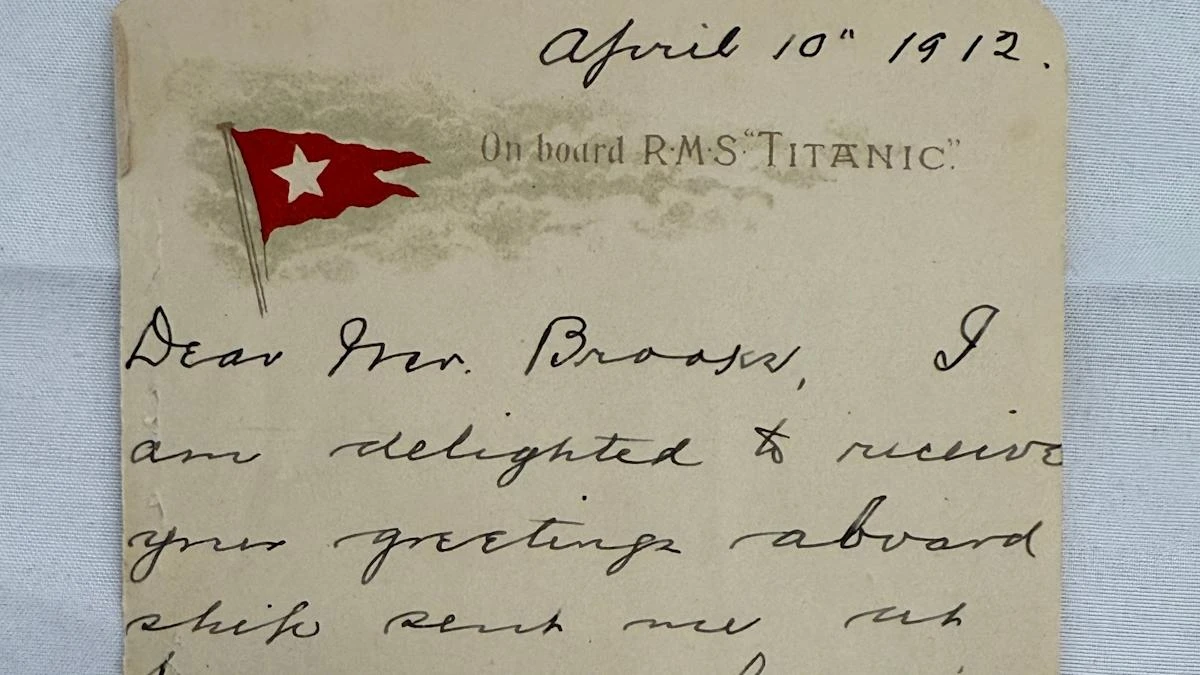 April 10" 1912.
On board R·M·S. "TITANIC".
Dear Mr. Brooks, I
am delighted to receive
your greetings aboard
ship sent me at